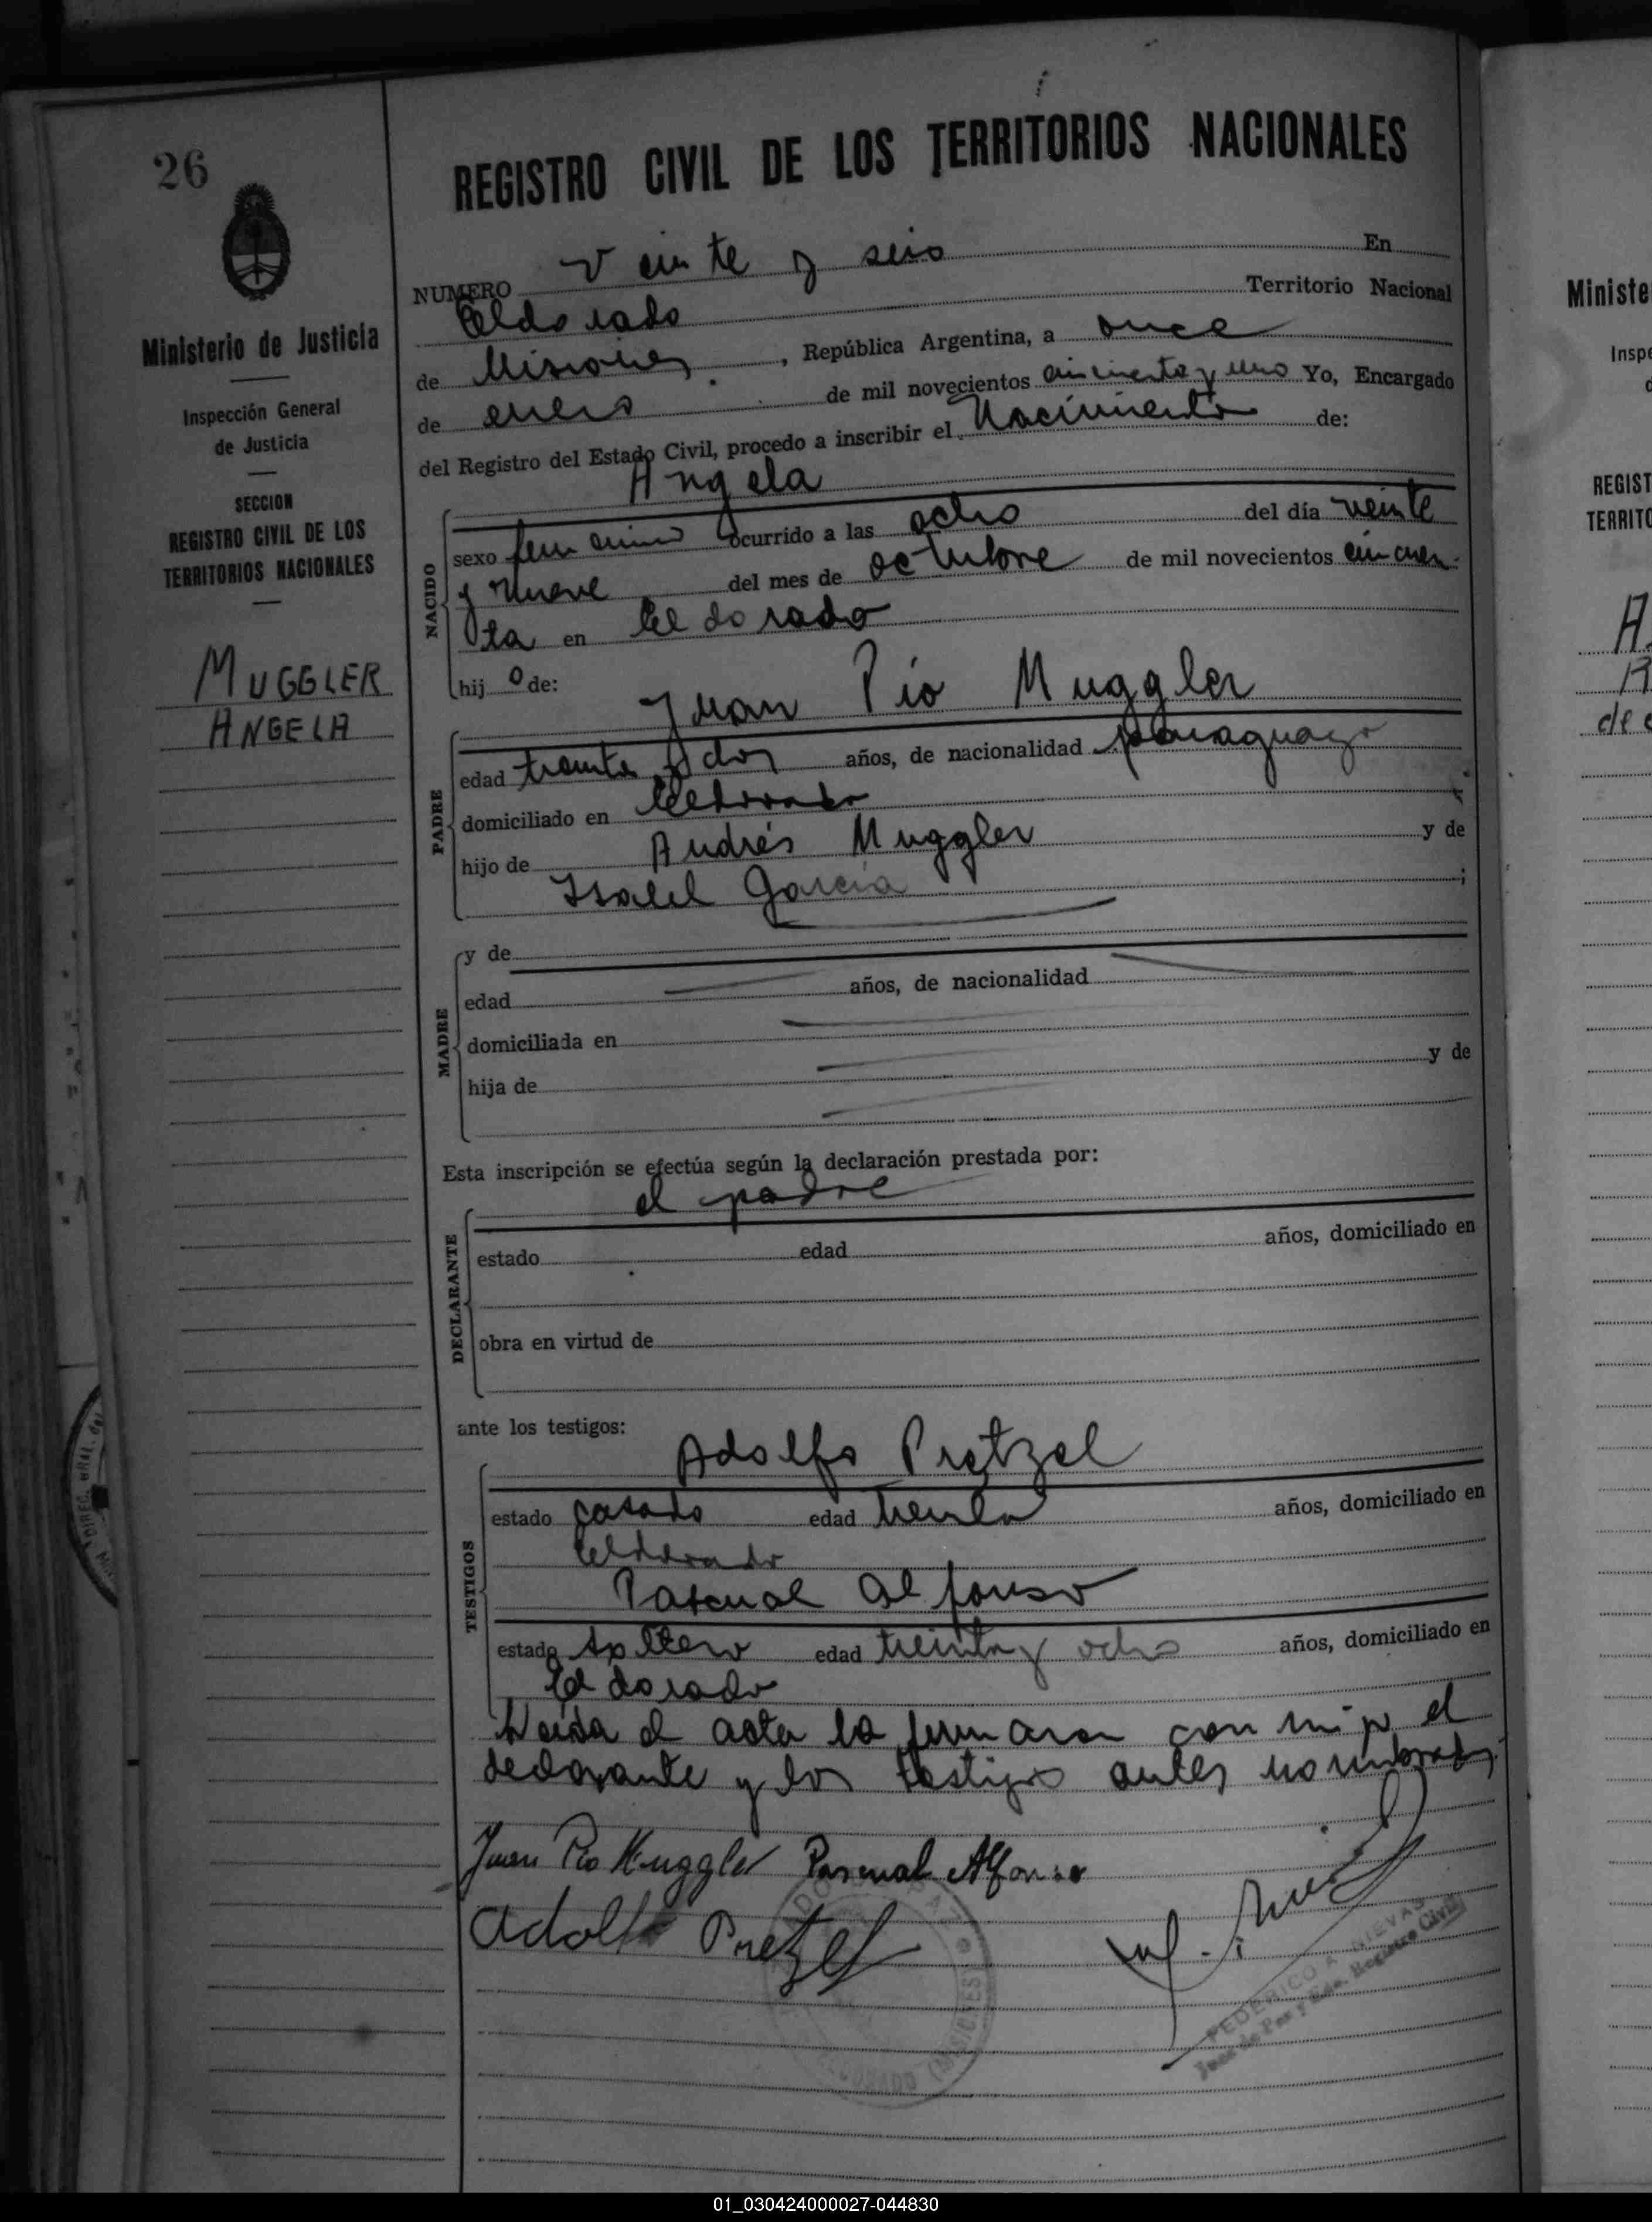 26
REGISTRO CIVIL DE LOS TERRITORIOS NACIONALES
NUMERO Veinte y seis En
Eldorado Territorio Nacional
de Misiones, República Argentina, a once
de enero de mil novecientos cincuenta y uno Yo, Encargado
del Registro del Estado Civil, procedo a inscribir el Nacimiento de:
Angela
NACIDO
sexo femenino ocurrido a las ocho del día veinte
y nueve del mes de octubre de mil novecientos cincuen-
ta en Eldorado
hijo de:
Juan Pío Muggler
PADRE
edad treinta y dos años, de nacionalidad paraguayo
domiciliado en Eldorado
hijo de Andrés Muggler y de
Isabel Garcia ;
MADRE
y de
edad años, de nacionalidad
domiciliada en
hija de y de
Esta inscripción se efectúa según la declaración prestada por:
el padre
DECLARANTE
estado edad años, domiciliado en
obra en virtud de
ante los testigos:
Adolfo Pretzel
TESTIGOS
estado casado edad treinta años, domiciliado en
Eldorado
Pascual Alfonso
estado soltero edad treinta y ocho años, domiciliado en
Eldorado
Leída el acta la firmaron con migo el
declarante y los testigos antes nombrados.
Juan Pío Muggler Pascual Alfonso
Adolfo Pretzel
FEDERICO A. NIEVAS
Juez de Paz y Edo. Registro Civil
(MISIONES)
Ministerio de Justicia
Inspección General
de Justicia
SECCION
REGISTRO CIVIL DE LOS
TERRITORIOS NACIONALES
MUGGLER
ANGELA
Ministe
Inspe
REGIST
TERRITO
01_030424000027-044830